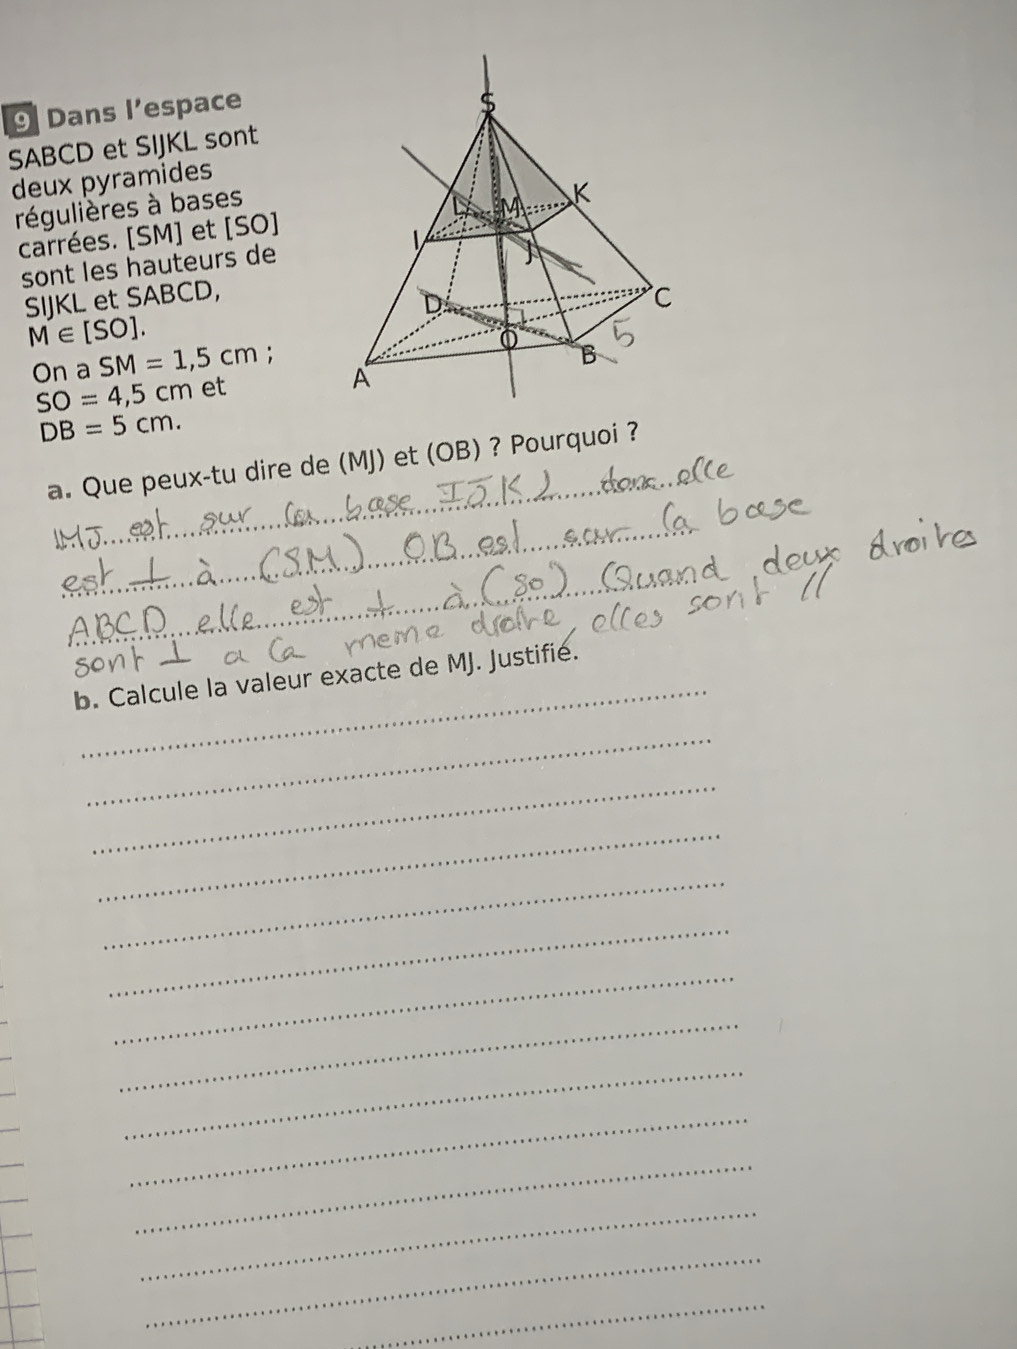 9 Dans l'espace
SABCD et SIJKL sont
deux pyramides
régulières à bases
carrées. [SM] et [SO]
sont les hauteurs de
SIJKL et SABCD,
M ∈ [SO].
On a SM = 1,5 cm ;
SO = 4,5 cm et
DB = 5 cm.
S
K
L
M
I
J
D
C
O
B
5
A
a. Que peux-tu dire de (MJ) et (OB) ? Pourquoi ?
MJ est sur la base IJKL donc elle
est ⊥ à (SM) OB est sur la base
ABCD elle est ⊥ à (SO) Quand deux droites
sont ⊥ a la meme droite, elles sont //
b. Calcule la valeur exacte de MJ. Justifié.